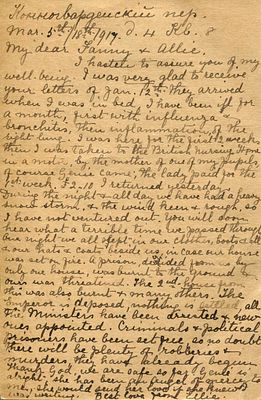 Конногвардейскій пер.
Mar. 5th/18th 1917 д. 4 Кв. 8
My dear Fanny & Allie.
I hasten to assure you of my
well-being. I was very glad to receive
your letters of Jan. 12th. They arrived
when I was in bed, I have been ill for
a month, first with influenza &
bronchitis then inflammation of the
right lung. I was here for the first 2 weeks,
then I was taken to the British nursing Home
in a motor, by the mother of one of my pupils,
of course Genie came, the lady paid for the
1st week, £2-10 I returned yesterday.
During the night & all day we have had a heavy
snow storm, & the wind has been rough, so
I have not ventured out. You will soon
hear what a terrible time we passed through
One night we all slept in our clothes, boots & all
& our hats & coats beside us, in case our house
was set on fire. A prison, divided from us by
only one house, was burnt to the ground &
ours was threatened. The 2nd home from
this was also burnt & many others. The
Emperor is deposed, nothing is settled, all
The Ministers have been arrested & new
ones appointed. Criminals & political
prisoners have been set free, so no doubt
there will be plenty of robberies &
murders, they have already begun.
Thank God, we are safe so far! Genie is
all right, she has been an angel of mercy to
me, she would send her love if she knew I
was writing. Best love from Allie